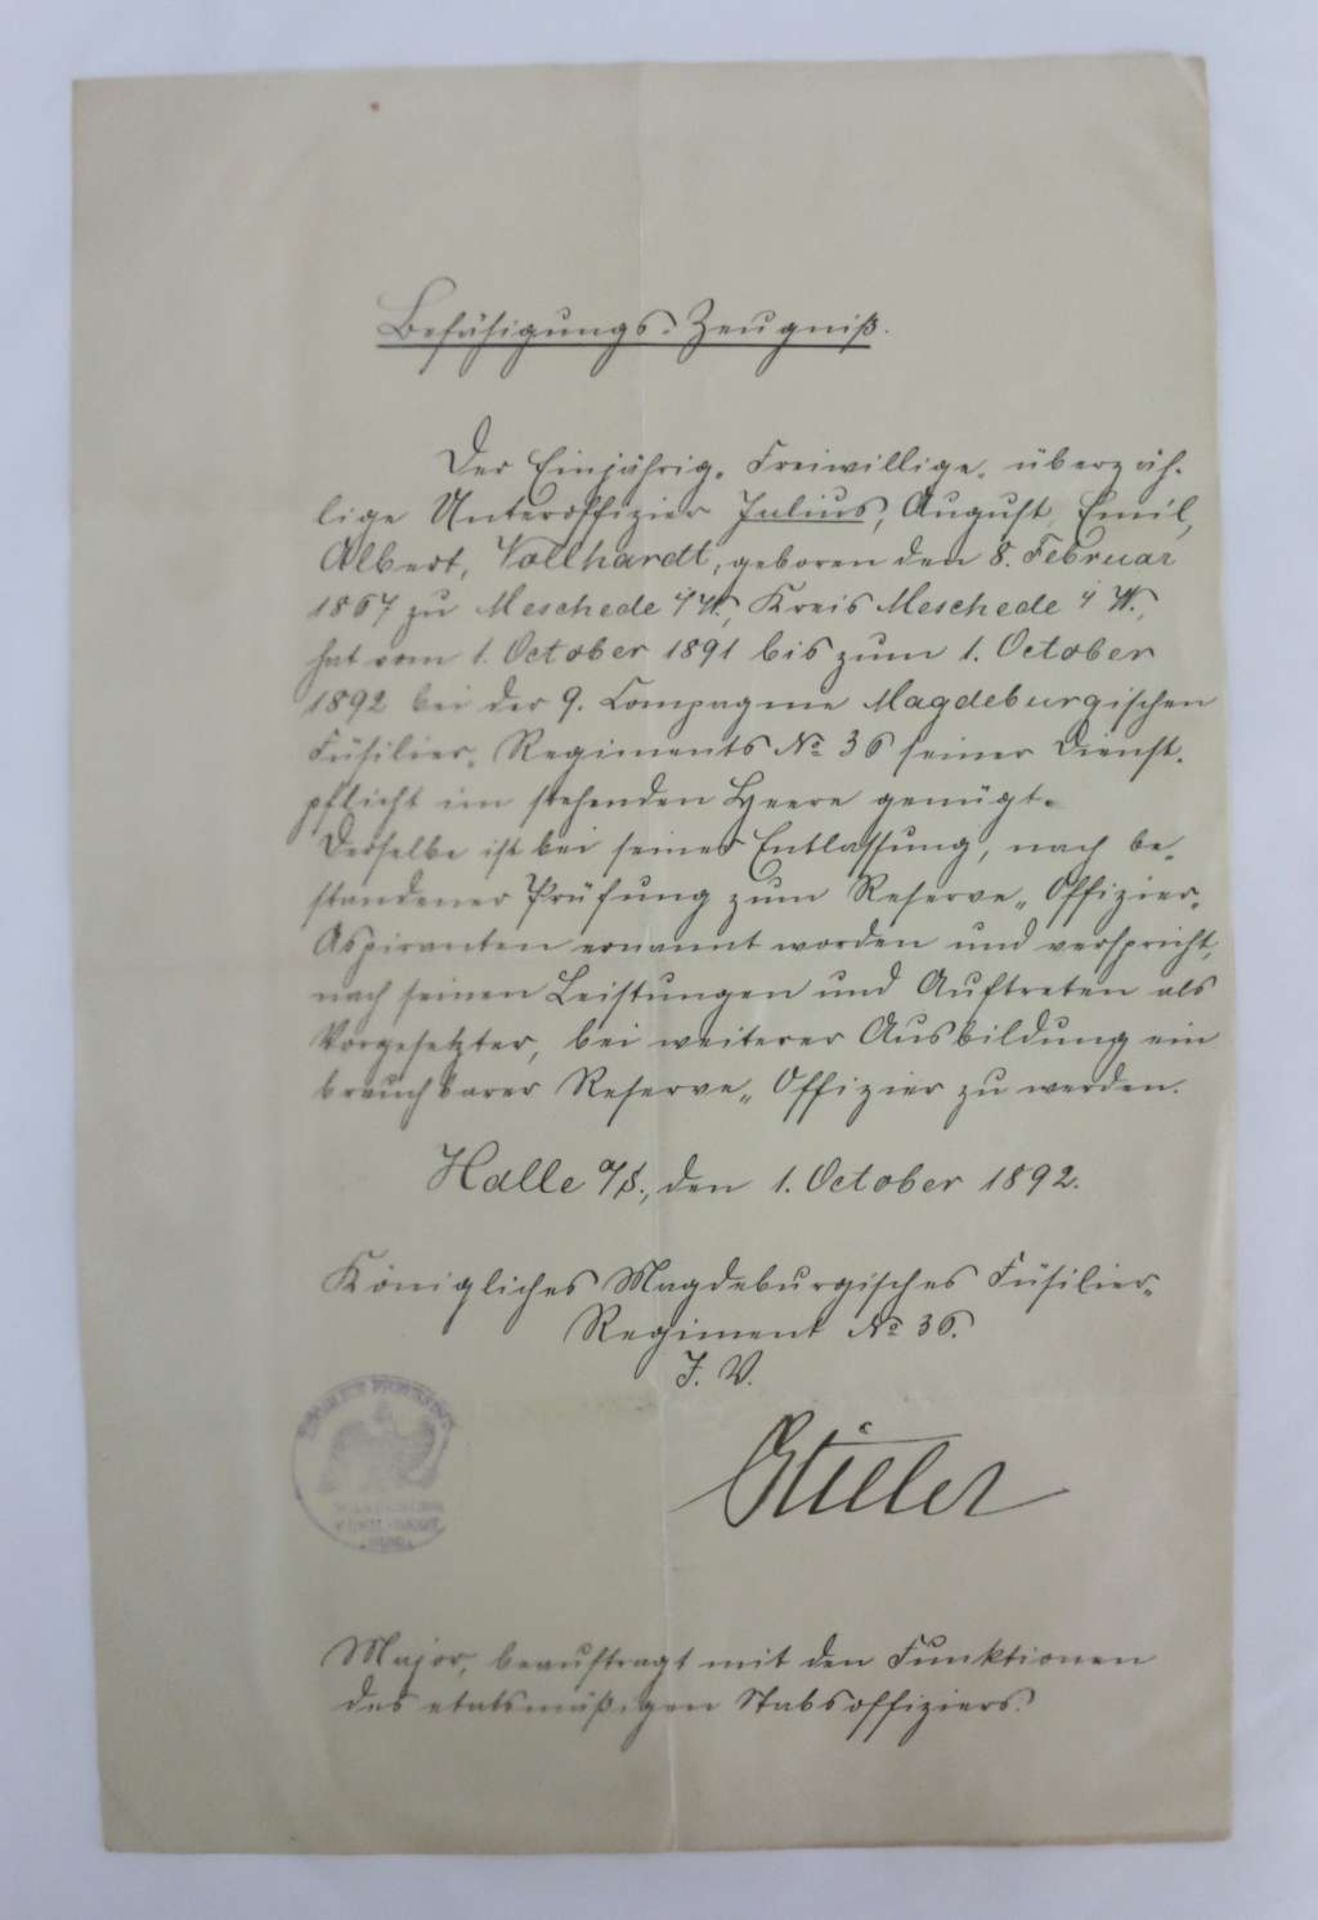 Befähigungs-Zeugniß.
Der Einjährig-Freiwillige, überzäh-
lige Unteroffizier Julius, August Emil,
Albert, Vollhardt, geboren den 8. Februar
1867 zu Meschede i/W., Kreis Meschede i/W.,
hat vom 1. October 1891 bis zum 1. October
1892 bei der 9. Compagnie Magdeburgischen
Füsilier-Regiments No 36 seiner Dienst-
pflicht im stehenden Heere genügt.
Derselbe ist bei seiner Entlassung, nach be-
standener Prüfung zum Reserve-Offizier-
Aspiranten ernannt worden und verspricht,
nach seinen Leistungen und Auftreten als
Vorgesetzter, bei weiterer Ausbildung ein
brauchbarer Reserve-Offizier zu werden.
Halle a/S., den 1. October 1892.
Königliches Magdeburgisches Füsilier-
Regiment No 36.
I. V.
Stieler
Major, beauftragt mit den Funktionen
des etatsmäßigen Stabsoffiziers.